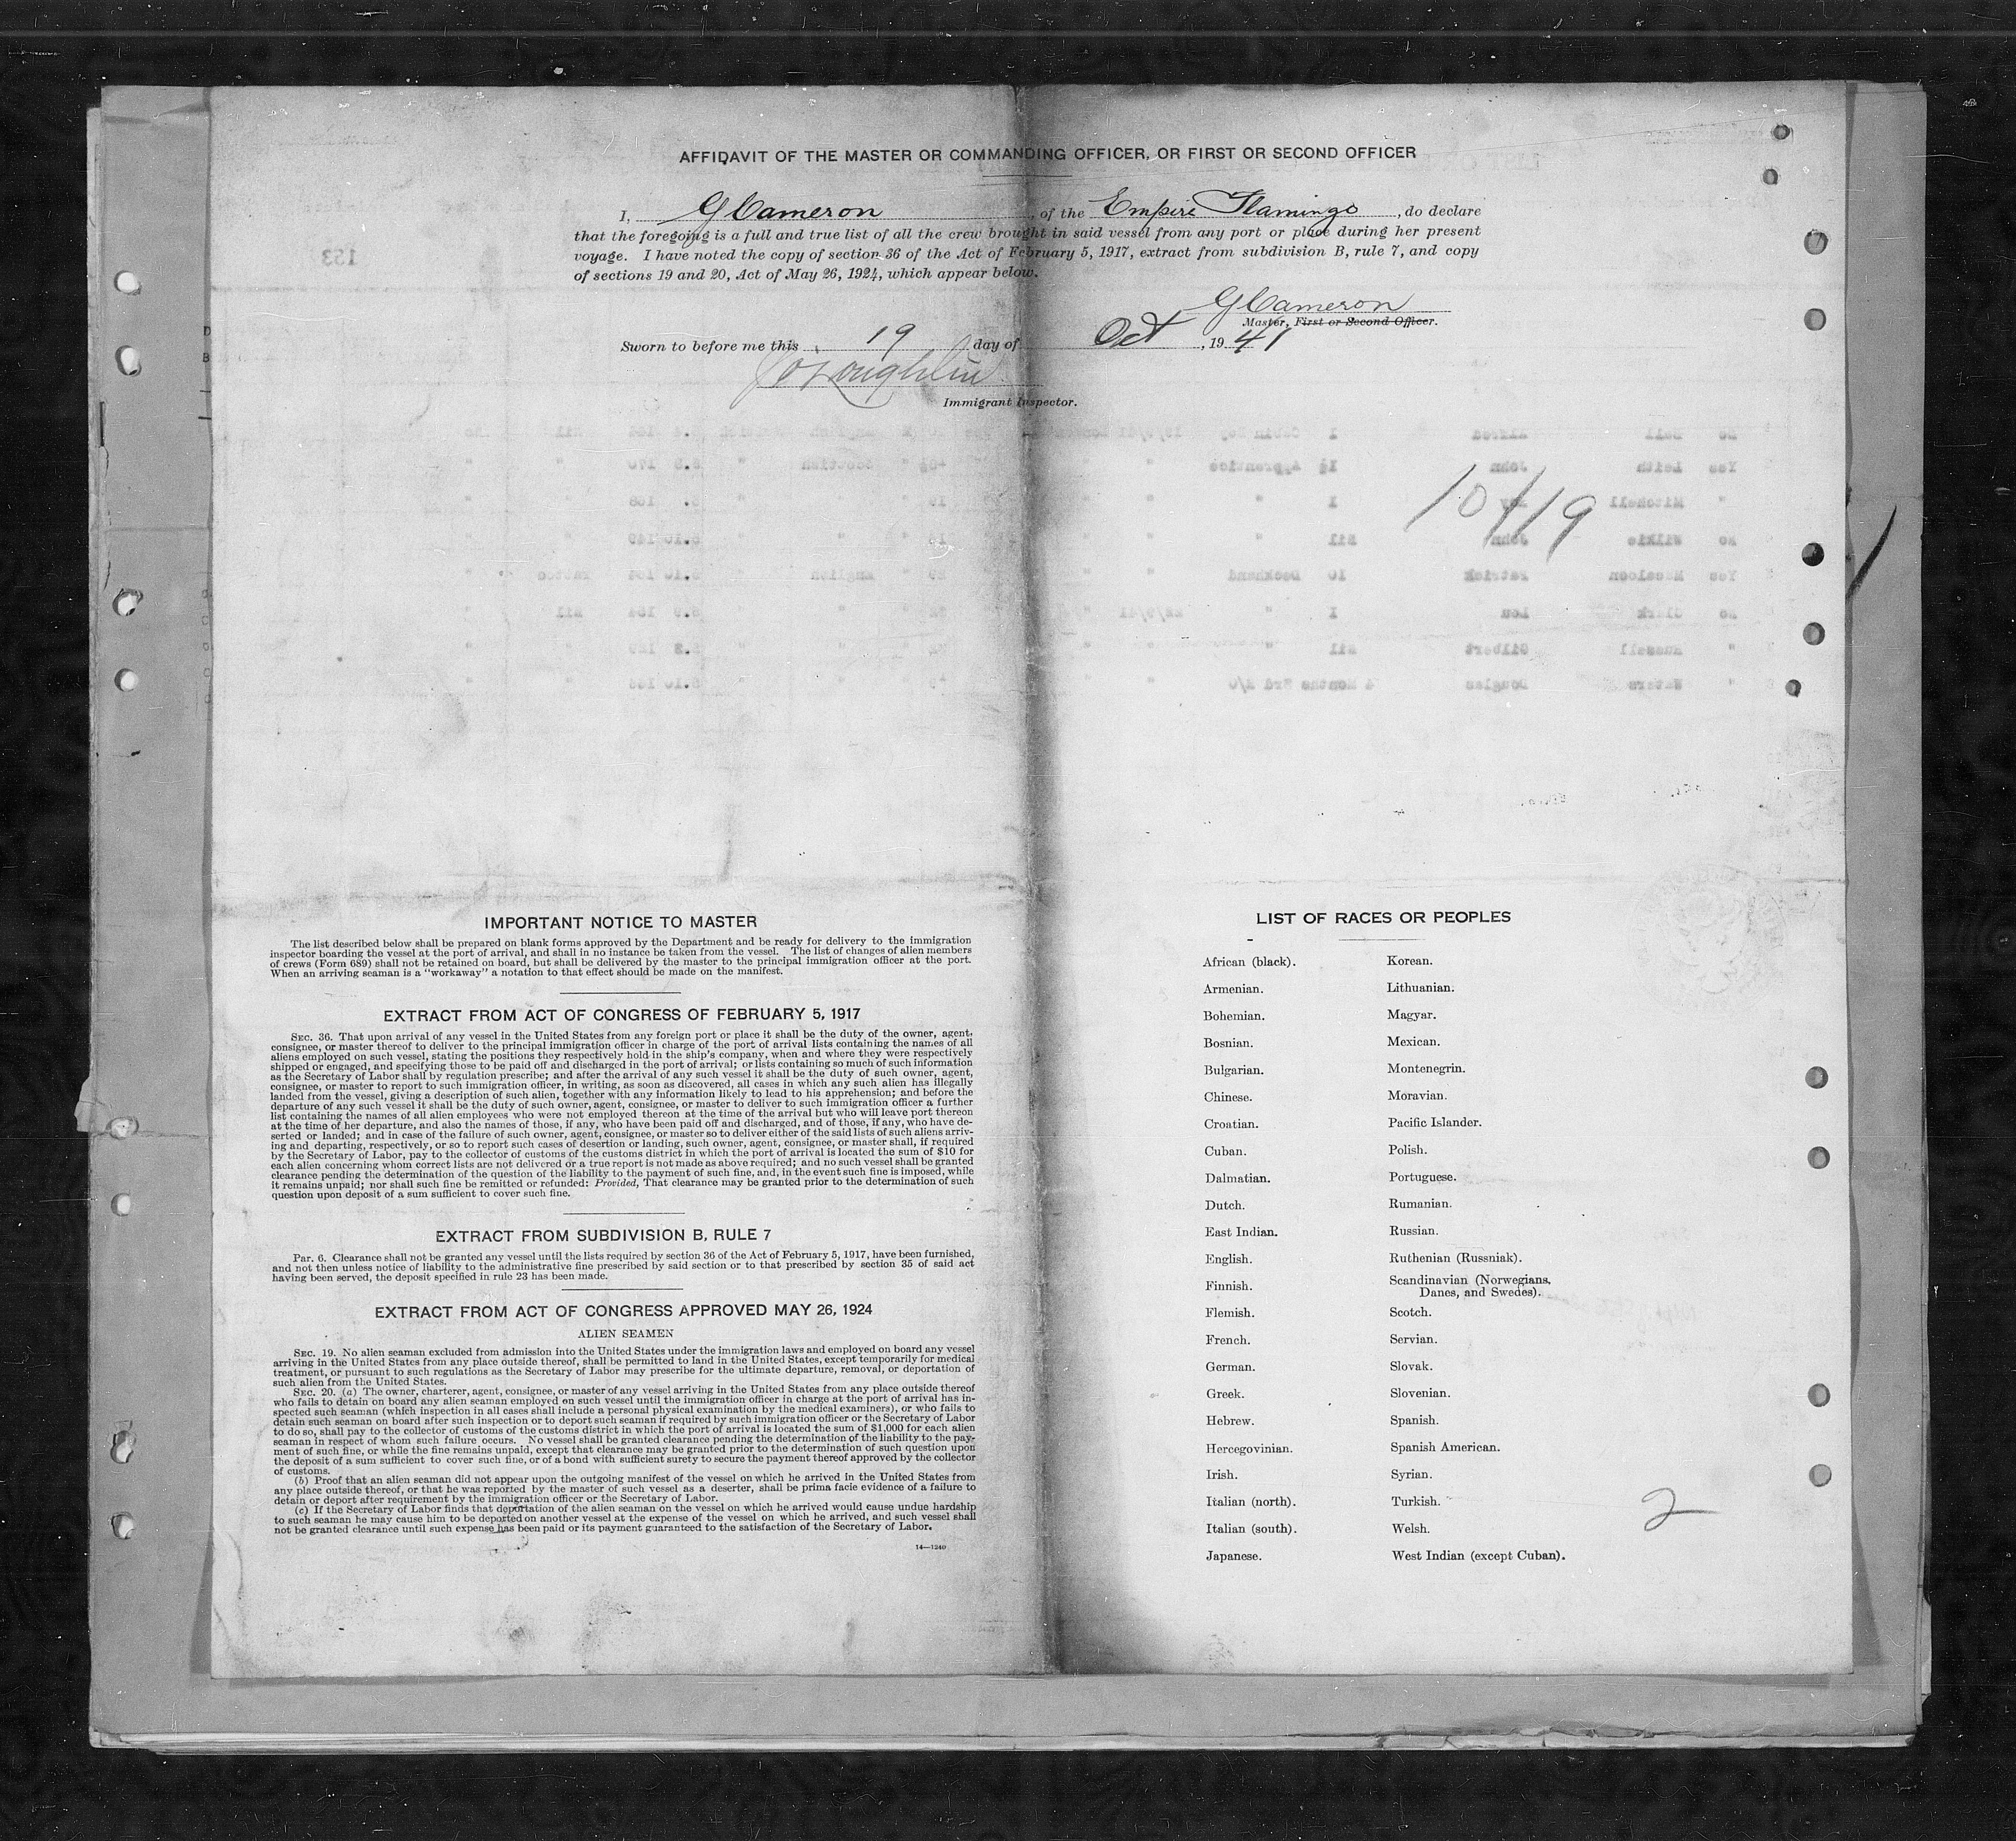 AFFIDAVIT OF THE MASTER OR COMMANDING OFFICER, OR FIRST OR SECOND OFFICER
I, G Cameron, of the Empire Flamingo, do declare
that the foregoing is a full and true list of all the crew brought in said vessel from any port or place during her present
voyage. I have noted the copy of section 36 of the Act of February 5, 1917, extract from subdivision B, rule 7, and copy
of sections 19 and 20, Act of May 26, 1924, which appear below.
G Cameron
Master, First or Second Officer.
Sworn to before me this 19 day of Oct, 1941
Immigrant Inspector.
10/19
IMPORTANT NOTICE TO MASTER
The list described below shall be prepared on blank forms approved by the Department and be ready for delivery to the immigration
inspector boarding the vessel at the port of arrival, and shall in no instance be taken from the vessel. The list of changes of alien members
of crews (Form 689) shall not be retained on board, but shall be delivered by the master to the principal immigration officer at the port.
When an arriving seaman is a "workaway" a notation to that effect should be made on the manifest.
EXTRACT FROM ACT OF CONGRESS OF FEBRUARY 5, 1917
SEC. 36. That upon arrival of any vessel in the United States from any foreign port or place it shall be the duty of the owner, agent,
consignee, or master thereof to deliver to the principal immigration officer in charge of the port of arrival lists containing the names of all
aliens employed on such vessel, stating the positions they respectively hold in the ship's company, when and where they were respectively
shipped or engaged, and specifying those to be paid off and discharged in the port of arrival; or lists containing so much of such information
as the Secretary of Labor shall by regulation prescribe; and after the arrival of any such vessel it shall be the duty of such owner, agent,
consignee, or master to report to such immigration officer, in writing, as soon as discovered, all cases in which any such alien has illegally
landed from the vessel, giving a description of such alien, together with any information likely to lead to his apprehension; and before the
departure of any such vessel it shall be the duty of such owner, agent, consignee, or master to deliver to such immigration officer a further
list containing the names of all alien employees who were not employed thereon at the time of the arrival but who will leave port thereon
at the time of her departure, and also the names of those, if any, who have been paid off and discharged, and of those, if any, who have de-
serted or landed; and in case of the failure of such owner, agent, consignee, or master so to deliver either of the said lists of such aliens arriv-
ing and departing, respectively, or so to report such cases of desertion or landing, such owner, agent, consignee, or master shall, if required
by the Secretary of Labor, pay to the collector of customs of the customs district in which the port of arrival is located the sum of $10 for
each alien concerning whom correct lists are not delivered or a true report is not made as above required; and no such vessel shall be granted
clearance pending the determination of the question of the liability to the payment of such fine, and, in the event such fine is imposed, while
it remains unpaid; nor shall such fine be remitted or refunded: Provided, That clearance may be granted prior to the determination of such
question upon deposit of a sum sufficient to cover such fine.
EXTRACT FROM SUBDIVISION B, RULE 7
Par. 6. Clearance shall not be granted any vessel until the lists required by section 36 of the Act of February 5, 1917, have been furnished,
and not then unless notice of liability to the administrative fine prescribed by said section or to that prescribed by section 35 of said act
having been served, the deposit specified in rule 23 has been made.
EXTRACT FROM ACT OF CONGRESS APPROVED MAY 26, 1924
ALIEN SEAMEN
SEC. 19. No alien seaman excluded from admission into the United States under the immigration laws and employed on board any vessel
arriving in the United States from any place outside thereof, shall be permitted to land in the United States, except temporarily for medical
treatment, or pursuant to such regulations as the Secretary of Labor may prescribe for the ultimate departure, removal, or deportation of
such alien from the United States.
SEC. 20. (a) The owner, charterer, agent, consignee, or master of any vessel arriving in the United States from any place outside thereof
who fails to detain on board any alien seaman employed on such vessel until the immigration officer in charge at the port of arrival has in-
spected such seaman (which inspection in all cases shall include a personal physical examination by the medical examiners), or who fails to
detain such seaman on board after such inspection or to deport such seaman if required by such immigration officer or the Secretary of Labor
to do so, shall pay to the collector of customs of the customs district in which the port of arrival is located the sum of $1,000 for each alien
seaman in respect of whom such failure occurs. No vessel shall be granted clearance pending the determination of the liability to the pay-
ment of such fine, or while the fine remains unpaid, except that clearance may be granted prior to the determination of such question upon
the deposit of a sum sufficient to cover such fine, or of a bond with sufficient surety to secure the payment thereof approved by the collector
of customs.
(b) Proof that an alien seaman did not appear upon the outgoing manifest of the vessel on which he arrived in the United States from
any place outside thereof, or that he was reported by the master of such vessel as a deserter, shall be prima facie evidence of a failure to
detain or deport after requirement by the immigration officer or the Secretary of Labor.
(c) If the Secretary of Labor finds that deportation of the alien seaman on the vessel on which he arrived would cause undue hardship
to such seaman he may cause him to be deported on another vessel at the expense of the vessel on which he arrived, and such vessel shall
not be granted clearance until such expense has been paid or its payment guaranteed to the satisfaction of the Secretary of Labor.
14—1240
LIST OF RACES OR PEOPLES
African (black). Korean.
Armenian. Lithuanian.
Bohemian. Magyar.
Bosnian. Mexican.
Bulgarian. Montenegrin.
Chinese. Moravian.
Croatian. Pacific Islander.
Cuban. Polish.
Dalmatian. Portuguese.
Dutch. Rumanian.
East Indian. Russian.
English. Ruthenian (Russniak).
Finnish. Scandinavian (Norwegians,
Danes, and Swedes).
Flemish. Scotch.
French. Servian.
German. Slovak.
Greek. Slovenian.
Hebrew. Spanish.
Hercegovinian. Spanish American.
Irish. Syrian.
Italian (north). Turkish.
Italian (south). Welsh.
Japanese. West Indian (except Cuban).
2